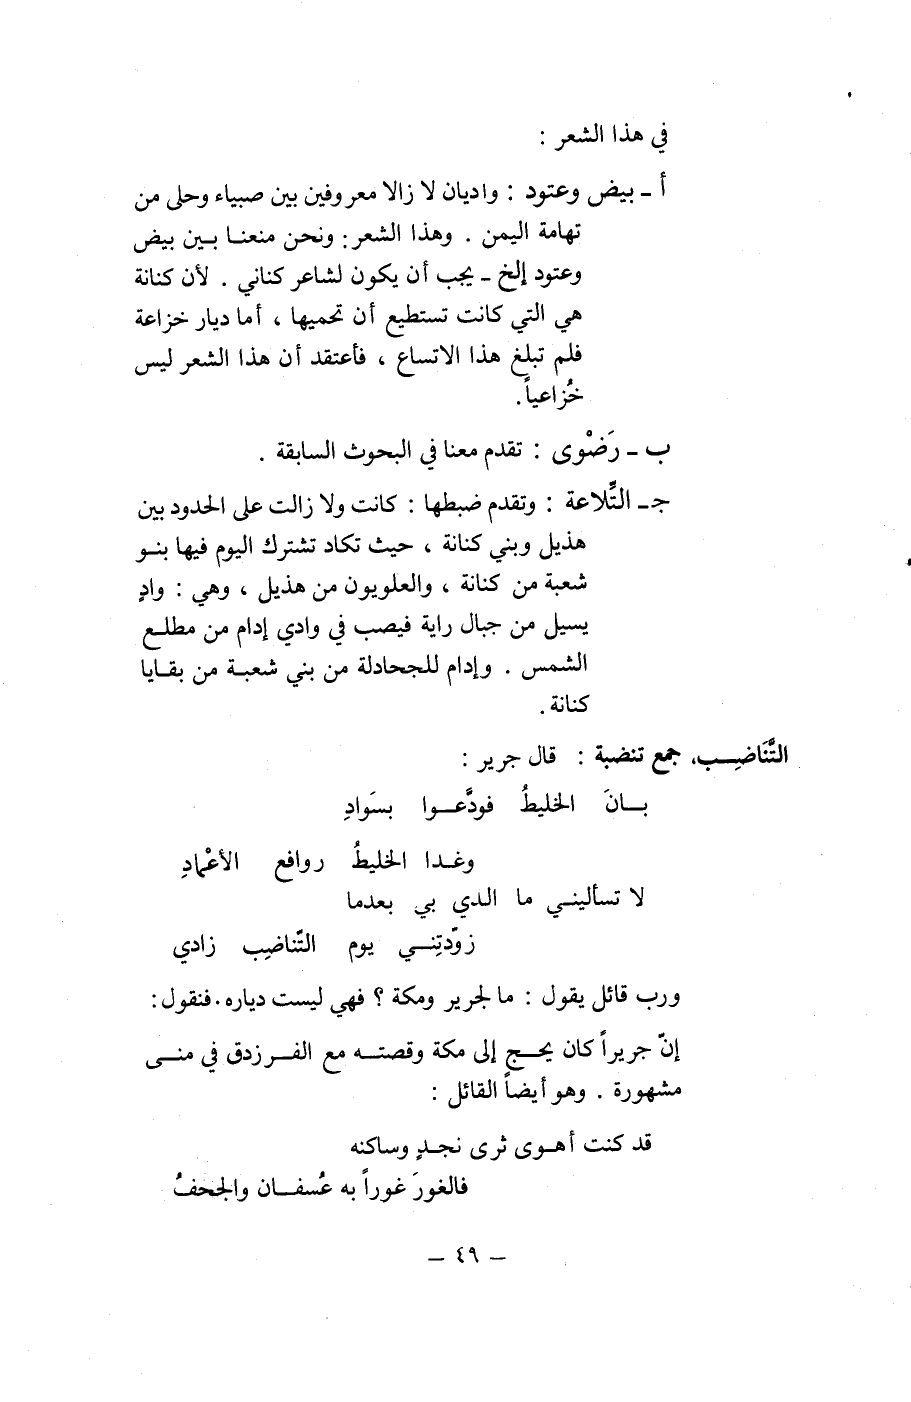 في هذا الشعر :
أ ـ بيض وعتود : واديان لا زالا معروفين بين صبياء وحلى من
تهامة اليمن . وهذا الشعر : ونحن منعنا بين بيض
وعتود إلخ ـ يجب أن يكون لشاعر كناني . لأن كنانة
هي التي كانت تستطيع أن تحميها ، أما ديار خزاعة
فلم تبلغ هذا الاتساع ، فأعتقد أن هذا الشعر ليس
خُزاعياً .
ب ـ رَضْوى : تقدم معنا في البحوث السابقة .
جـ ـ التِّلاعة : وتقدم ضبطها : كانت ولا زالت على الحدود بين
هذيل وبني كنانة ، حيث تكاد تشترك اليوم فيها بنو
شعبة من كنانة ، والعلويون من هذيل ، وهي : وادٍ
يسيل من جبال راية فيصب في وادي إدام من مطلع
الشمس . وإدام للجحادلة من بني شعبة من بقايا
كنانة .
التَّنَاضِب، جمع تنضبة : قال جرير :
بانَ الخليطُ فودَّعوا بسَوادِ
وغدا الخليطُ روافع الأعْمادِ
لا تسأليني ما الذي بي بعدما
زوّدتِني يوم التّناضِب زادي
ورب قائل يقول : ما لجرير ومكة ؟ فهي ليست دياره . فنقول :
إنّ جريراً كان يحج إلى مكة وقصته مع الفرزدق في منى
مشهورة . وهو أيضاً القائل :
قد كنت أهوى ثرى نجدٍ وساكنه
فالغورَ غوراً به عُسفان والجحفُ
ـ ٤٩ ـ